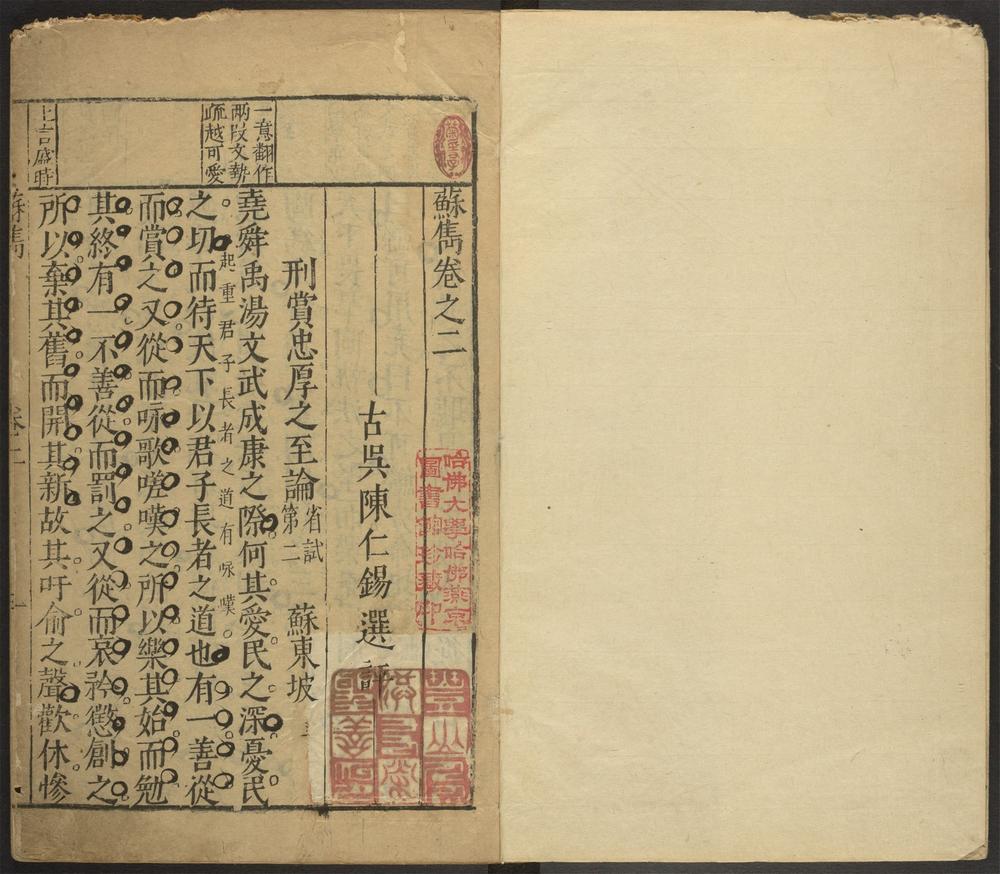 蘇雋卷之二
古吳陳仁錫選評
刑賞忠厚之至論 省試第二 蘇東坡
一意翻作
兩段文勢
疏越可愛
堯舜禹湯文武成康之際何其愛民之深憂民
之切而待天下以君子長者之道也有一善從
起重君子長者之道有咏嘆
而賞之又從而咏歌嗟嘆之所以樂其始而勉
其終有一不善從而罰之又從而哀矜懲創之
上言盛時
所以棄其舊而開其新故其吁俞之聲歡休慘
蘇雋
卷二
哈佛大學哈佛燕京
圖書館珍藏印